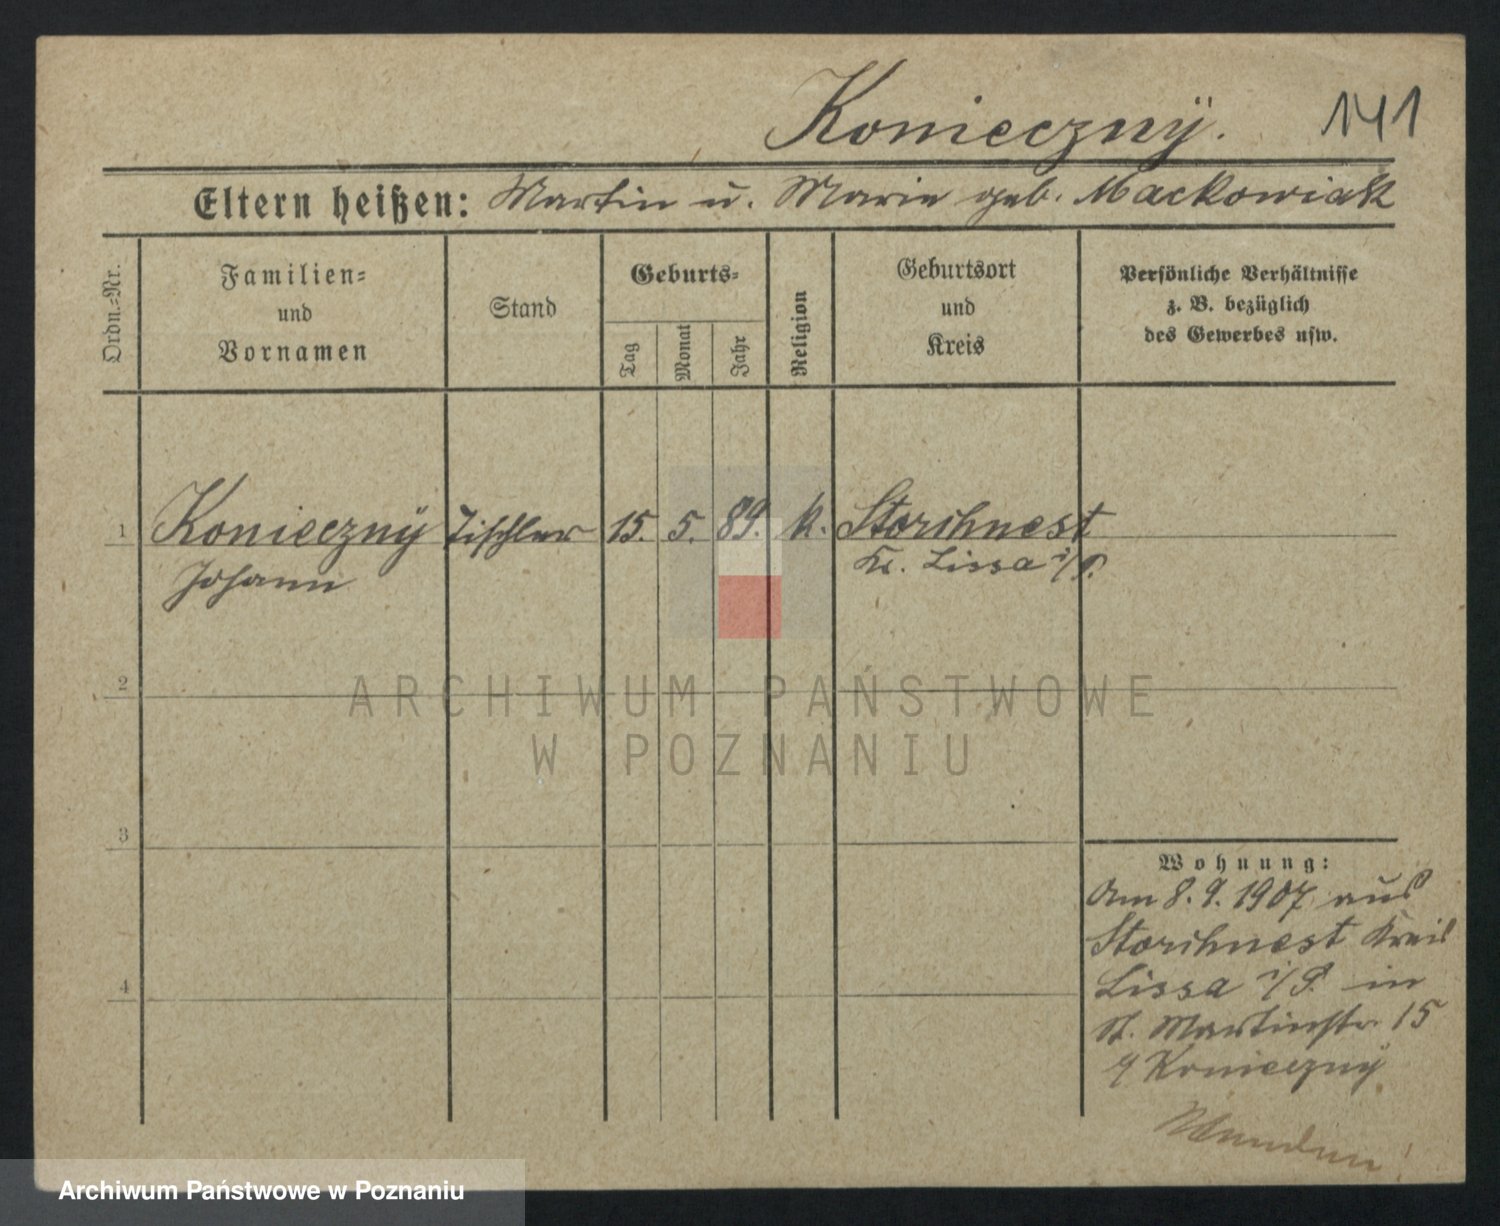 Koniecznÿ.
141
Eltern heißen: Martin u. Marie geb. Mackowiak
Ordn.-Nr.
Familien-
und
Vornamen
Stand
Geburts-
Tag
Monat
Jahr
Religion
Geburtsort
und
Kreis
Persönliche Verhältnisse
z. B. bezüglich
des Gewerbes usw.
1 Koniecznÿ Tischler 15. 5. 89. k. Storchnest
Johann Kr. Lissa i/P.
2
ARCHIWUM PAŃSTWOWE
W POZNANIU
3
4
Wohnung:
Am 8. 9. 1907 aus
Storchnest Kreis
Lissa i/P. in
St. Martinstr. 15
Koniecznÿ
Archiwum Państwowe w Poznaniu